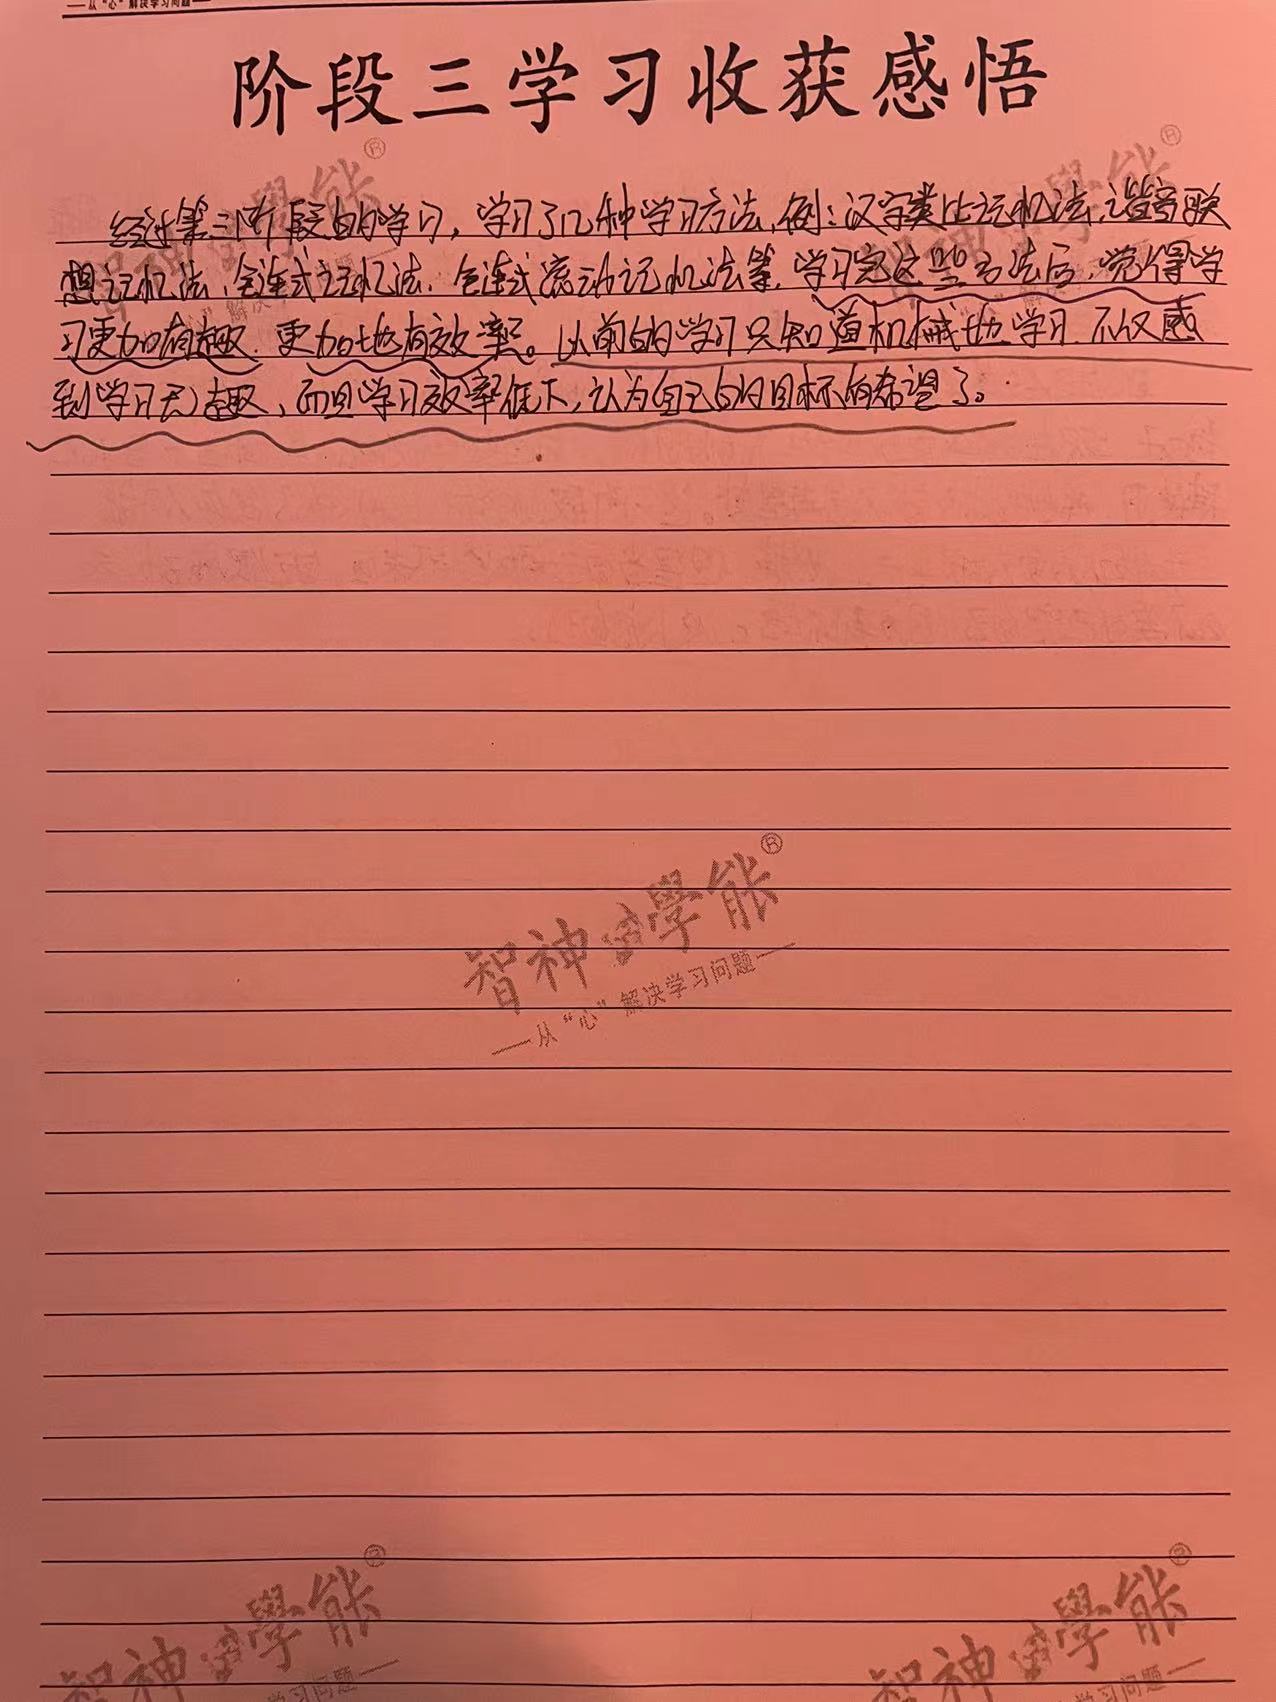 ——从“心”解决学习问题——
阶段三学习收获感悟
经过第三阶段的学习，学习了几种学习方法，例：汉字类比记忆法，谐音联
想记忆法，包连式记忆法，包连式滚动记忆法等，学习完这些方法后，觉得学
习更加有趣，更加地有效率。以前的学习只知道机械地学习，不仅感
到学习无趣，而且学习效率低下，认为自己的目标的希望了。
智神學能®
——从“心”解决学习问题——
智神學能®
学习问题——
智神學能®
学习问题——